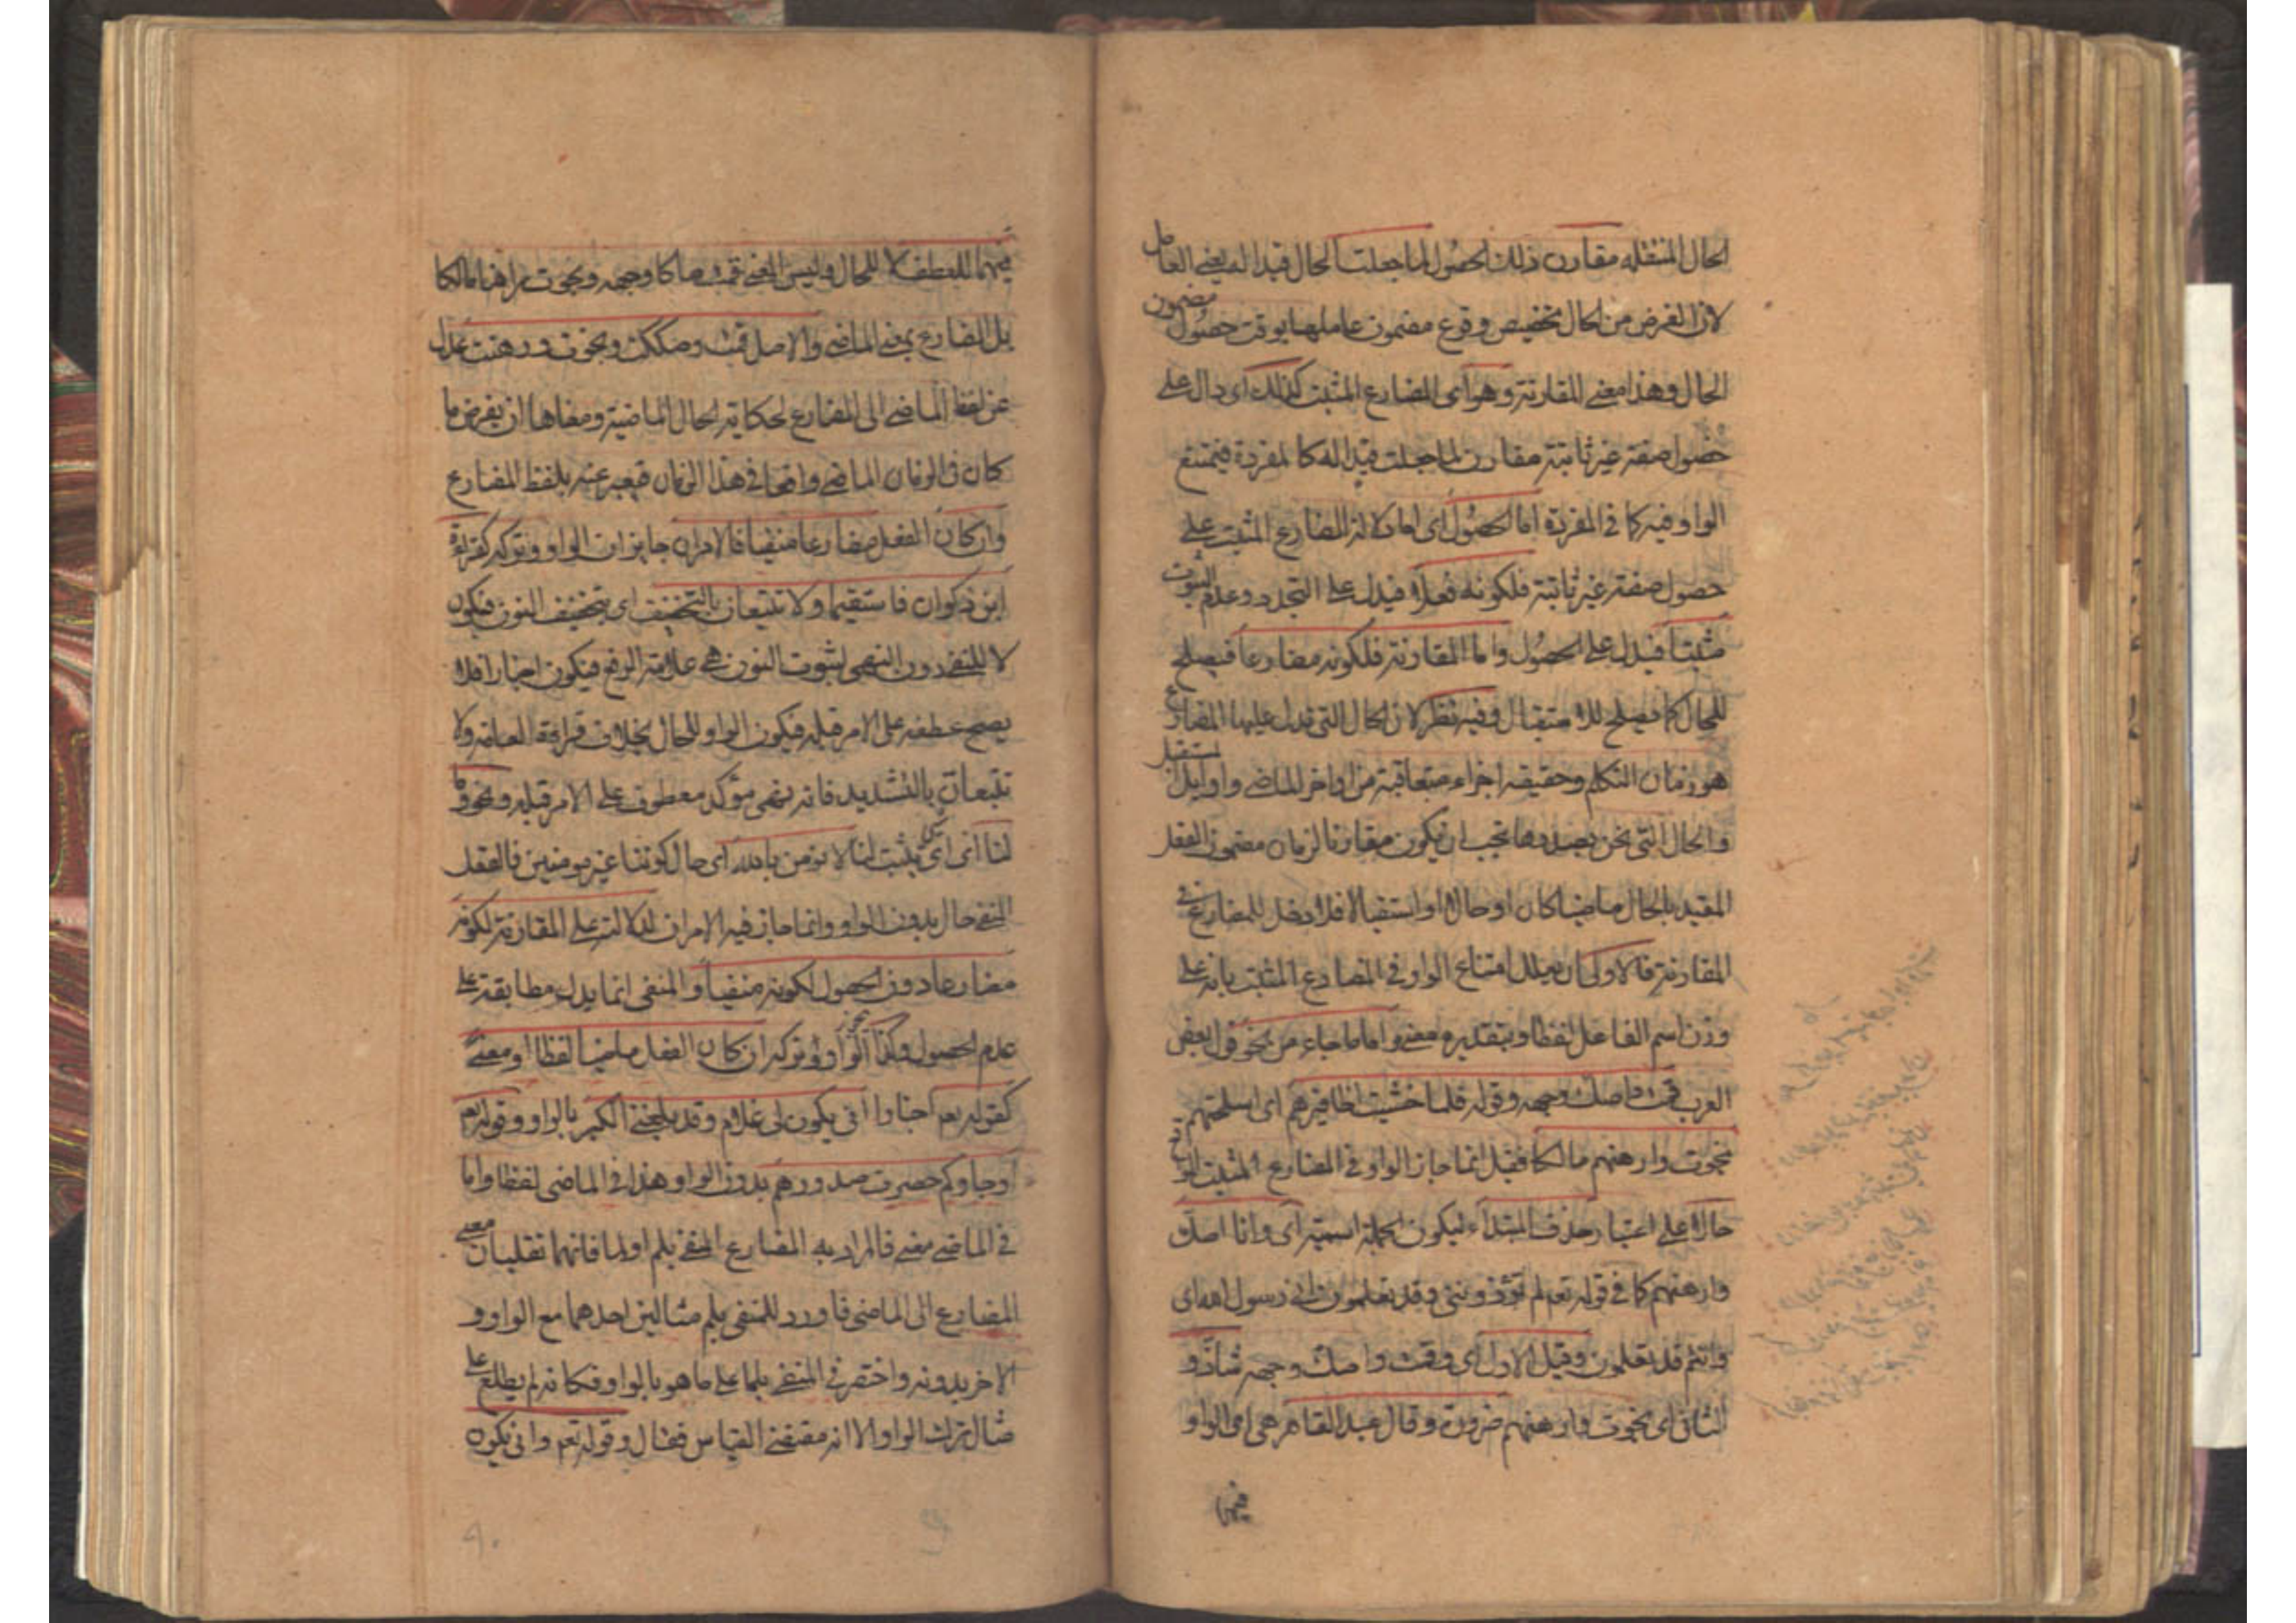 الحال المنتقله مقارن ذلك الحصول لما جعلت الحال قيدا له يعنى العامل
لان الغرض من الحال تخصيص وقوع مضمون عاملها بوقت حصول مضمون
الحال وهذا معنى المقارنة وهو اى المضارع المثبت كذلك اى دال على
حصول صفة غير ثابتة مقارن لما جعلت قيدا له كالمفردة فيمتنع
الواو فيه كما فى المفردة اما الحصول اى اما دلالة المضارع المثبت على
حصول صفة غير ثابتة فلكونه فعلا فيدل على التجدد وعدم الثبوت
مثبتا فيدل على الحصول واما المقارنة فلكونه مضارعا فيصلح
للحال كما يصلح للاستقبال وفيه نظر لان الحال التى تدل عليها المضارع
هو زمان التكلم وحقيقته اجزاء متعاقبة من اواخر الماضى واوايل المستقبل
والحال التى نحن بصددها تجب ان يكون مقارنا لزمان مضمون الفعل
المقيد بالحال ماضيا كان او حالا او استقبالا فلا دخل للمضارع فى
المقارنة فالاولى ان يعلل امتناع الواو فى المضارع المثبت بانه على
وزن اسم الفاعل لفظا وبتقديره معنى واما ما جاء من نحو قول بعض
العرب قمت واصك وجهه وقوله فلما خشيت اظافيرهم اى اسلحتهم
نجوت وارهنهم مالكا فقيل انما جاز الواو فى المضارع المثبت الواقع
حالا على اعتبار حذف المبتدأ ليكون الجملة اسمية اى وانا اصك
وارهنهم كما فى قوله تعم لم تؤذوننى وقد تعلمون انى رسول الله اى
وانتم قد تعلمون وقيل الاول اى وقمت واصك وجهه شاذ و
الثانى اى نجوت وارهنهم ضرورة وقال عبد القاهر هى اى الواو
فيهما
فيهما للعطف لا للحال وليس المعنى قمت صاكا وجهه ونجوت راهنا مالكا
بل المضارع بمعنى الماضى والاصل قمت وصككت ونجوت ورهنت عدل
عن لفظ الماضى الى المضارع لحكاية الحال الماضية ومعناها ان يفرض ما
كان فى الزمان الماضى واقعا فى هذا الزمان فيعبر عنه بلفظ المضارع
وان كان الفعل مضارعا منفيا فالامران جايزان الواو وتركه كقراءة
ابن ذكوان فاستقيما ولا تتبعان بالتخفيف اى بتخفيف النون فيكون
لا للنفى دون النهى لثبوت النون هى علامة الرفع فيكون اخبارا فلا
يصح عطفه على الامر قبله فيكون الواو للحال بخلاف قراءة العامة ولا
تتبعان بالتشديد فانه نهى مؤكد معطوف على الامر قبله ونحو وما
لنا اى اى شئ يثبت لنا لا نؤمن بالله اى حال كوننا غير مومنين فالفعل
المنفى حال بدون الواو وانما جاز فيه الامران لدلالته على المقارنة لكونه
مضارعا دون الحصول لكونه منفيا والمنفى انما يدل مطابقة على
عدم الحصول وكذا يجوز الواو وتركه ان كان الفعل ماضيا لفظا او معنى
كقوله تعم اخبارا انى يكون لى غلام وقد بلغنى الكبر بالواو وقوله تعم
او جاؤكم حصرت صدورهم بدون الواو وهذا فى الماضى لفظا واما
فى الماضى معنى فالمراد به المضارع المنفى بلم او لما فانهما تقلبان معنى
المضارع الى الماضى فاورد للمنفى بلم مثالين احدهما مع الواو و
الاخر بدونه واختصر فى المنفى بلما على ما هو بالواو فكانه لم يطلع على
مثال ترك الواو الا انه مقتضى القياس فقال وقوله تعم وانى يكون